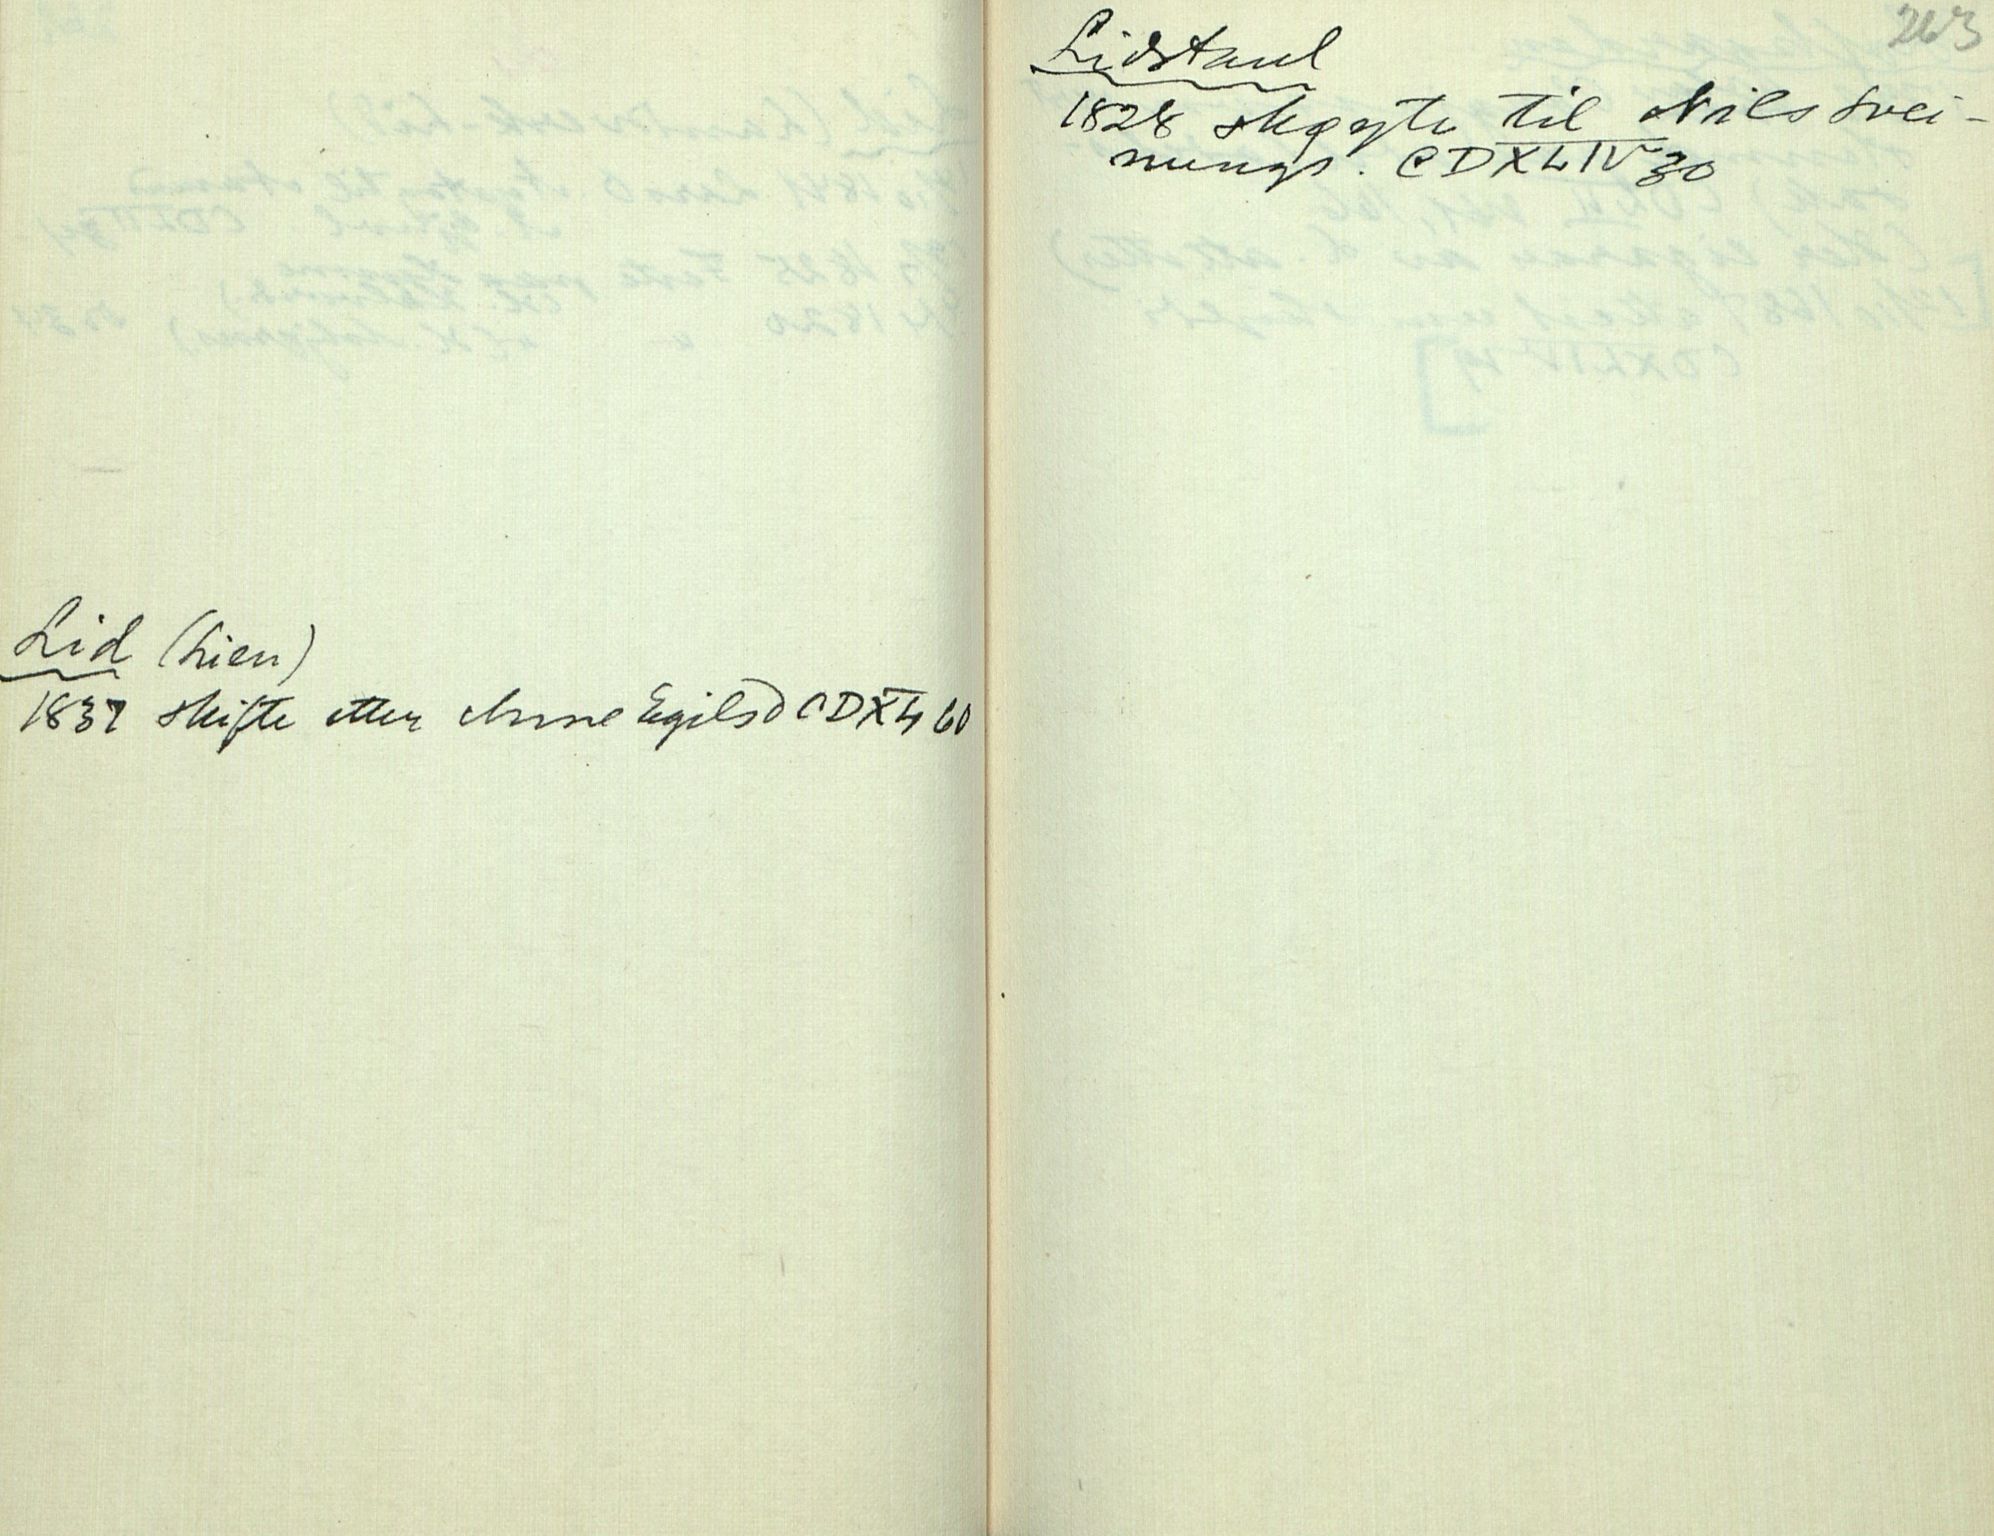 Lid (Lien)
1837 skifte etter Anne Egilsd CDXL 60
263
Lidstaul
1828 skøyte til Nils Svei-
nungs. CDXLIV 30